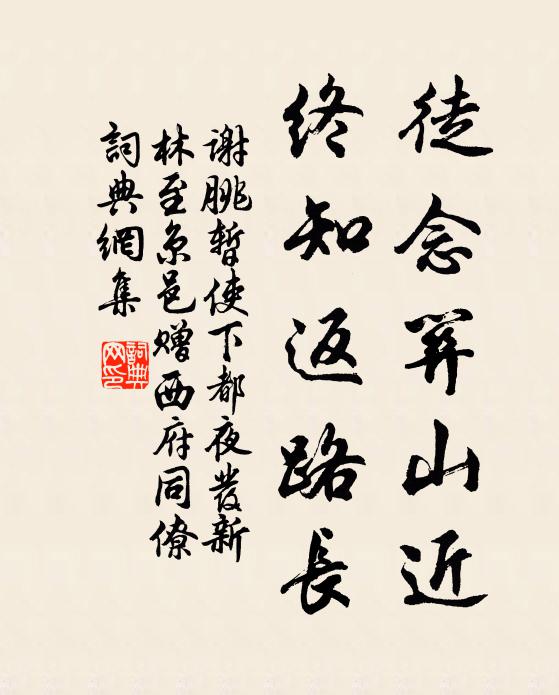 徒念關山近
終知返路長
謝朓暫使下都夜發新
林至京邑贈西府同僚
詞典網集
詞典
网印